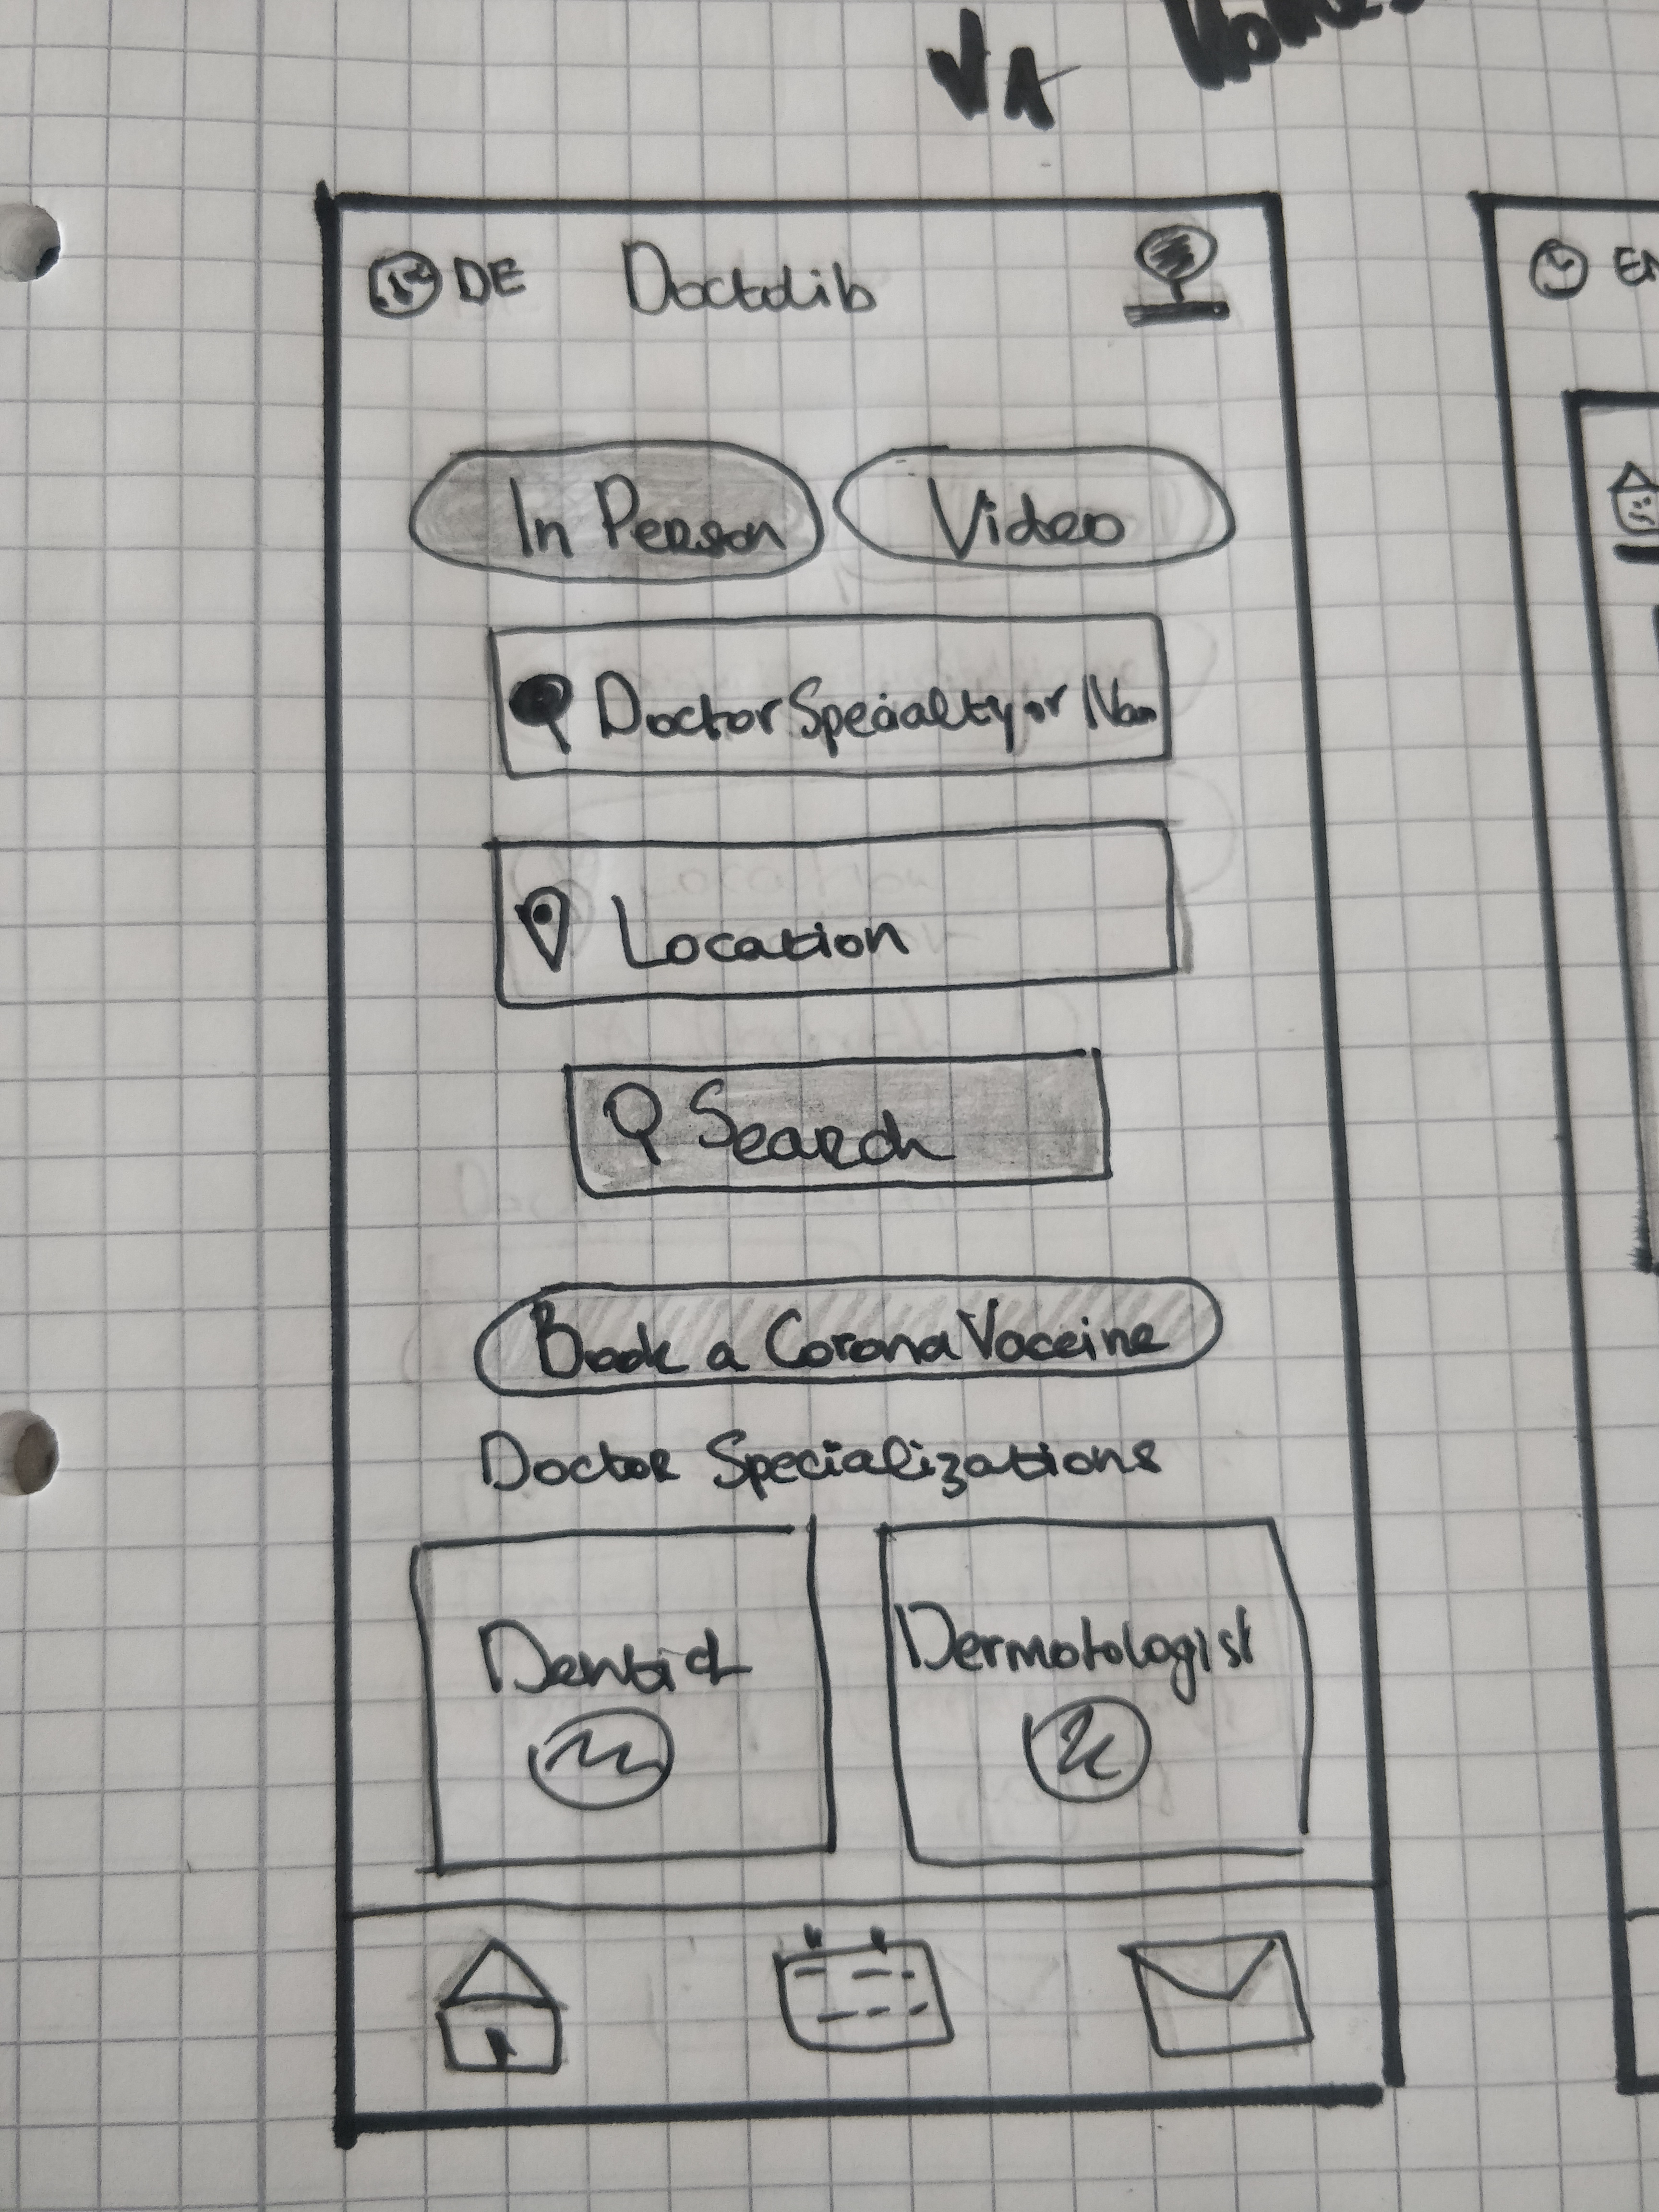 VA
DE Doctolib
EN
In Person Video
Doctor Specialty or Nam
Location
Search
Book a Corona Vaccine
Doctor Specializations
Dentist Dermotologist